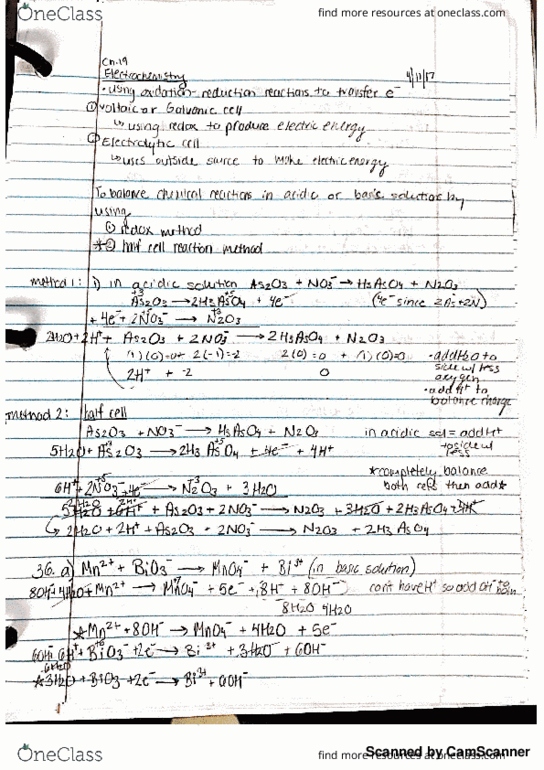 OneClass
find more resources at oneclass.com
Ch-19
Electrochemistry
4/11/17
• using oxidation-reduction reactions to transfer e⁻
① voltaic or Galvanic cell
↳ using redox to produce electric energy
Electrolytic cell
↳ uses outside source to make electric energy
To balance chemical reactions in acidic or basic solution by
using
① redox method
*② half cell reaction method
method 1: 1) in acidic solution As₂O₃ + NO₃⁻ → H₃AsO₄ + N₂O₃
As₂O₃ → 2H₃AsO₄ + 4e⁻ (4e⁻ since 2As + 2N)
+ 4e⁻ + 2NO₃⁻ → N₂O₃
2H₂O + 2H⁺ + As₂O₃ + 2NO₃⁻ → 2H₃AsO₄ + N₂O₃
1(0)=0 + 2(-1)=-2 2(0)=0 + (1)(0)=0
2H⁺ + -2 0
• add H₂O to
side w/ less
oxygen
• add H⁺ to
balance charge
method 2: half cell
As₂O₃ + NO₃⁻ → H₃AsO₄ + N₂O₃ in acidic sol = add H⁺
5H₂O + As₂O₃ → 2H₃AsO₄ + 4e⁻ + 4H⁺
*completely balance
both rxns then add*
6H⁺ + 2NO₃⁻ + 4e⁻ → N₂O₃ + 3H₂O
5H₂O + 6H⁺ + As₂O₃ + 2NO₃⁻ → N₂O₃ + 3H₂O + 2H₃AsO₄ + 4H⁺
↳ 2H₂O + 2H⁺ + As₂O₃ + 2NO₃⁻ → N₂O₃ + 2H₃AsO₄
36. a) Mn²⁺ + BiO₃⁻ → MnO₄⁻ + Bi³⁺ (in basic solution)
8OH⁻ + 4H₂O + Mn²⁺ → MnO₄⁻ + 5e⁻ + (8H⁺ + 8OH⁻) can't have H⁺ so add OH⁻ to
8H₂O 4H₂O
*Mn²⁺ + 8OH⁻ → MnO₄⁻ + 4H₂O + 5e⁻
6OH⁻ 6H⁺ + BiO₃⁻ + 2e⁻ → Bi³⁺ + 3H₂O + 6OH⁻
6H₂O
*3H₂O + BiO₃⁻ + 2e⁻ → Bi³⁺ + 6OH⁻
OneClass
find more resources at oneclass.com
Scanned by CamScanner